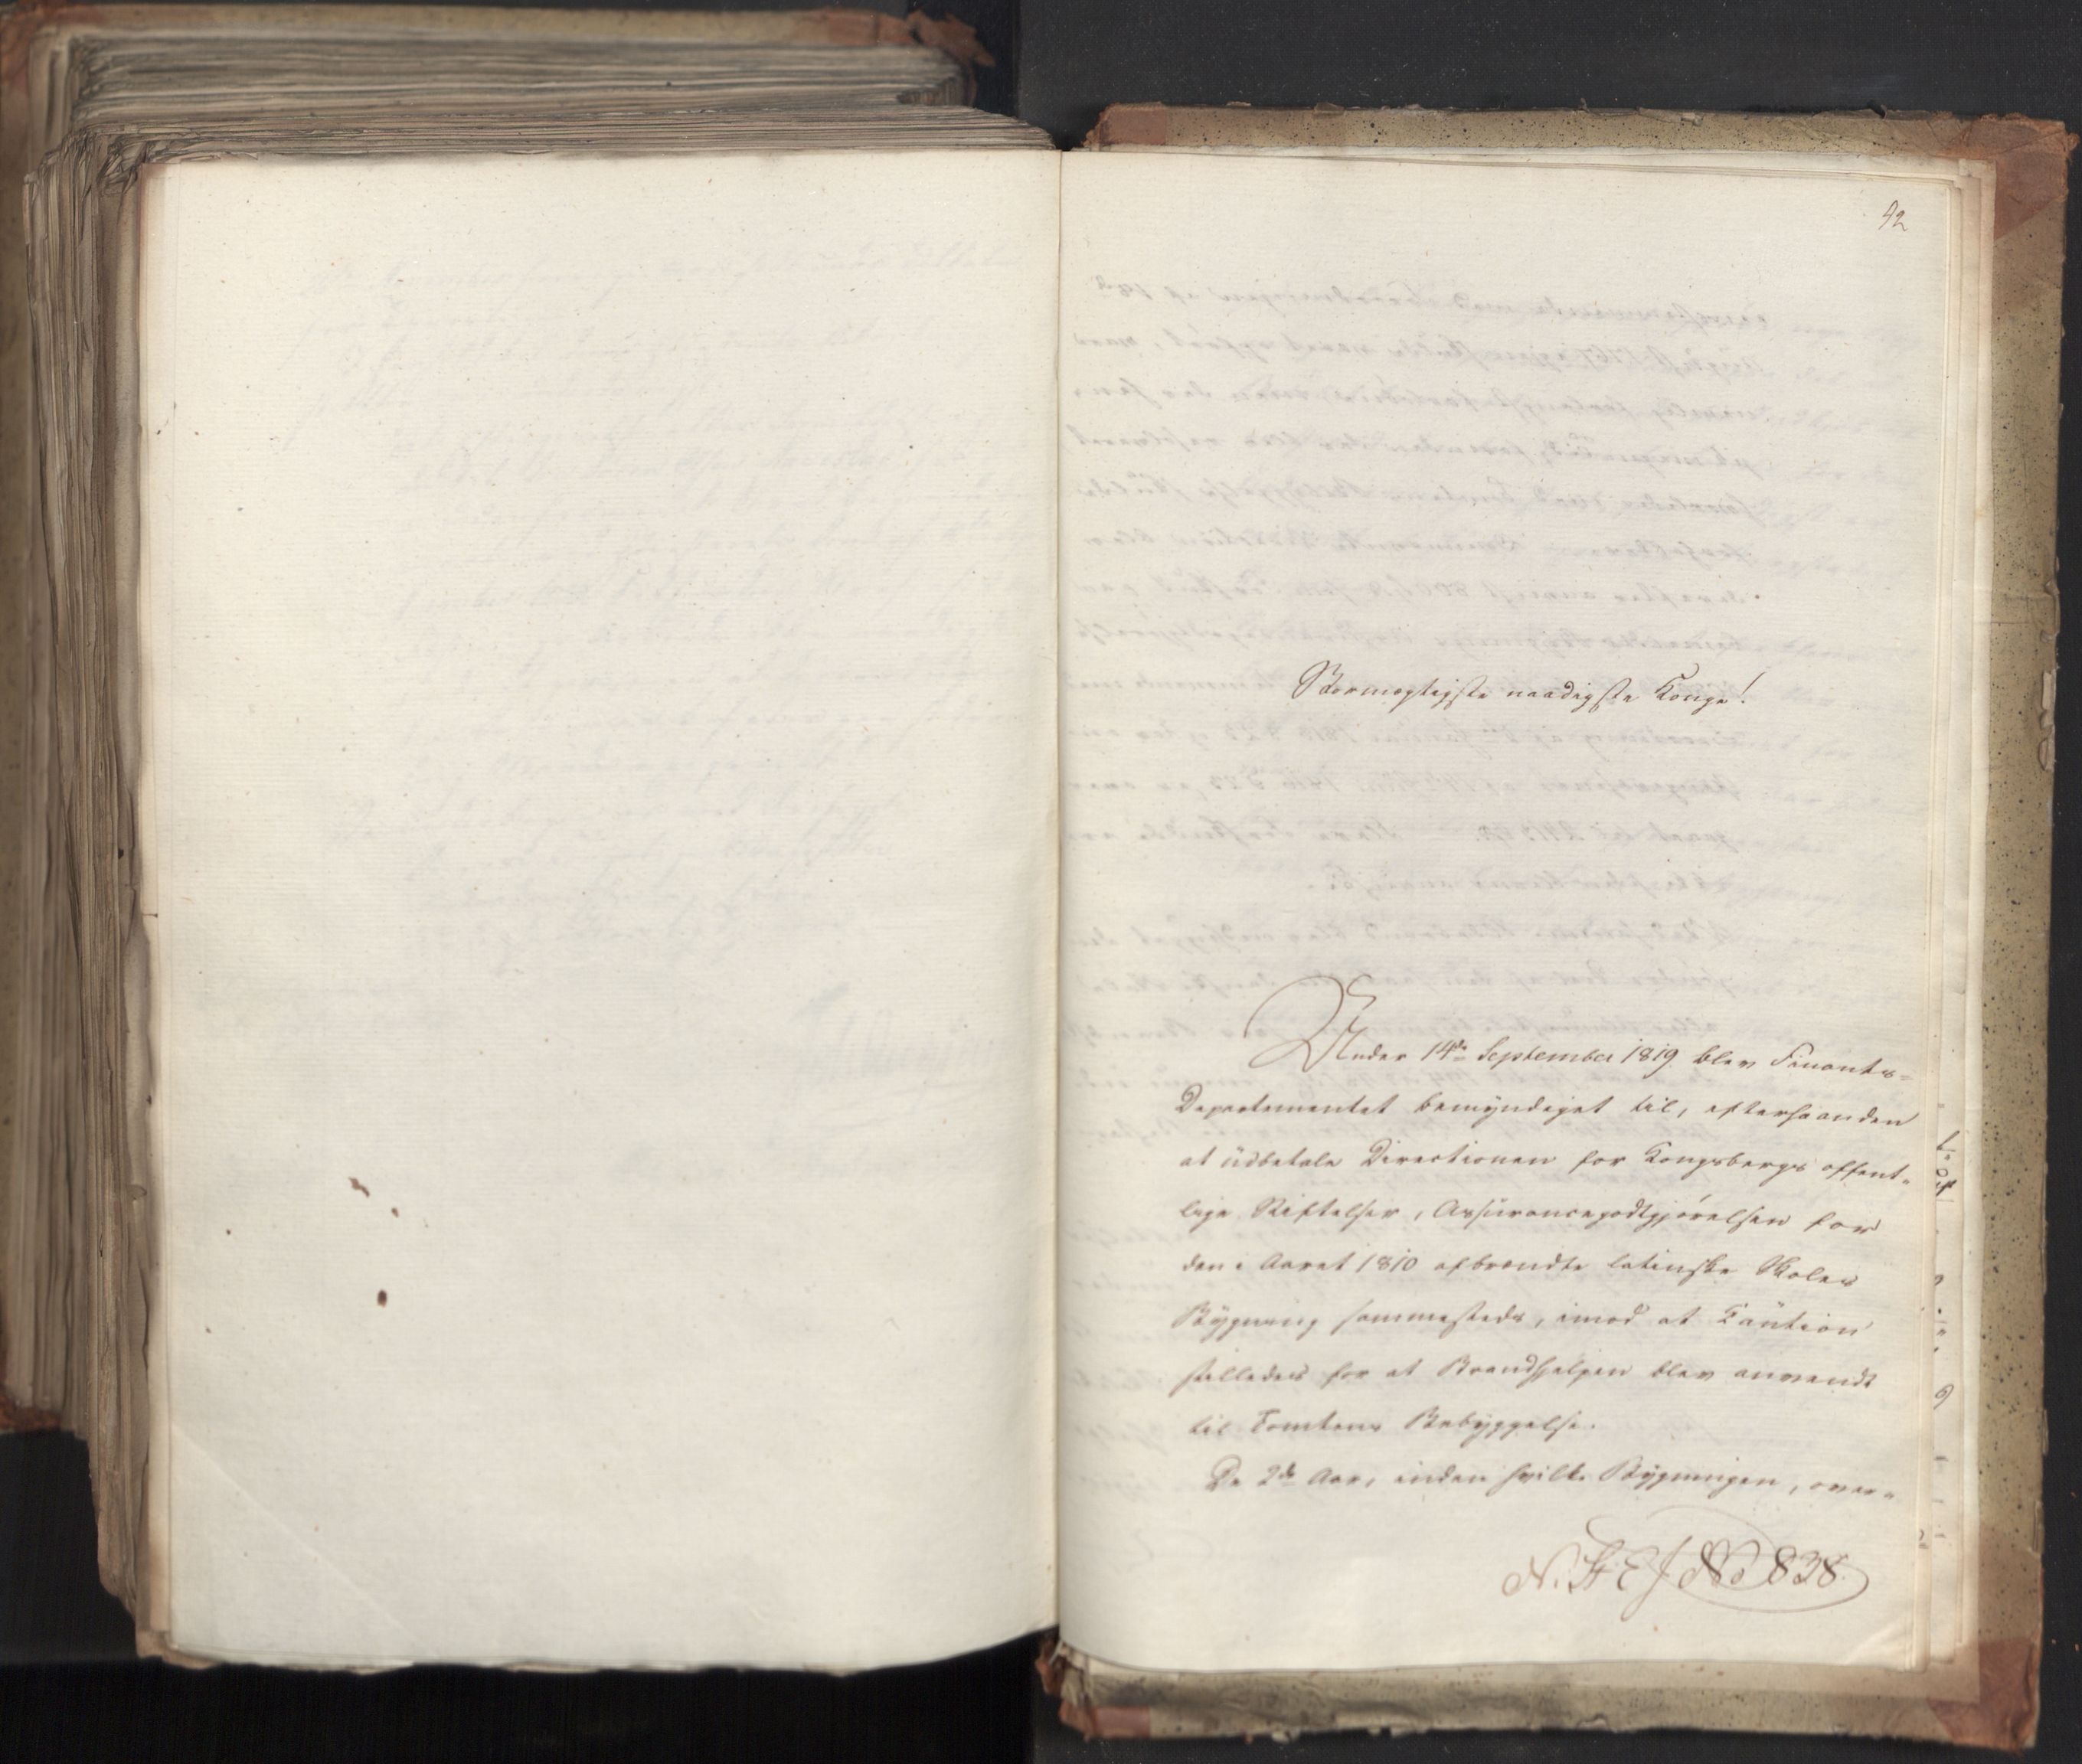 42
Stormægtigste naadigste Konge!
Under 14de September 1819 blev Finants-
Departementet bemyndiget til, efterhaanden
at üdbetale Directionen for Kongsbergs offent-
lige Stiftelser, Assürancegodtgjörelsen for
den i Aaret 1810 afbrændte latinske Skoles
Bÿgning sammesteds, imod at Caütion
stilledes for at Brandhjelpen blev anvendt
til Tomtens Bebÿggelse.
De 2de Aar, inden hvilke Bÿgningen, over-
N. 838.